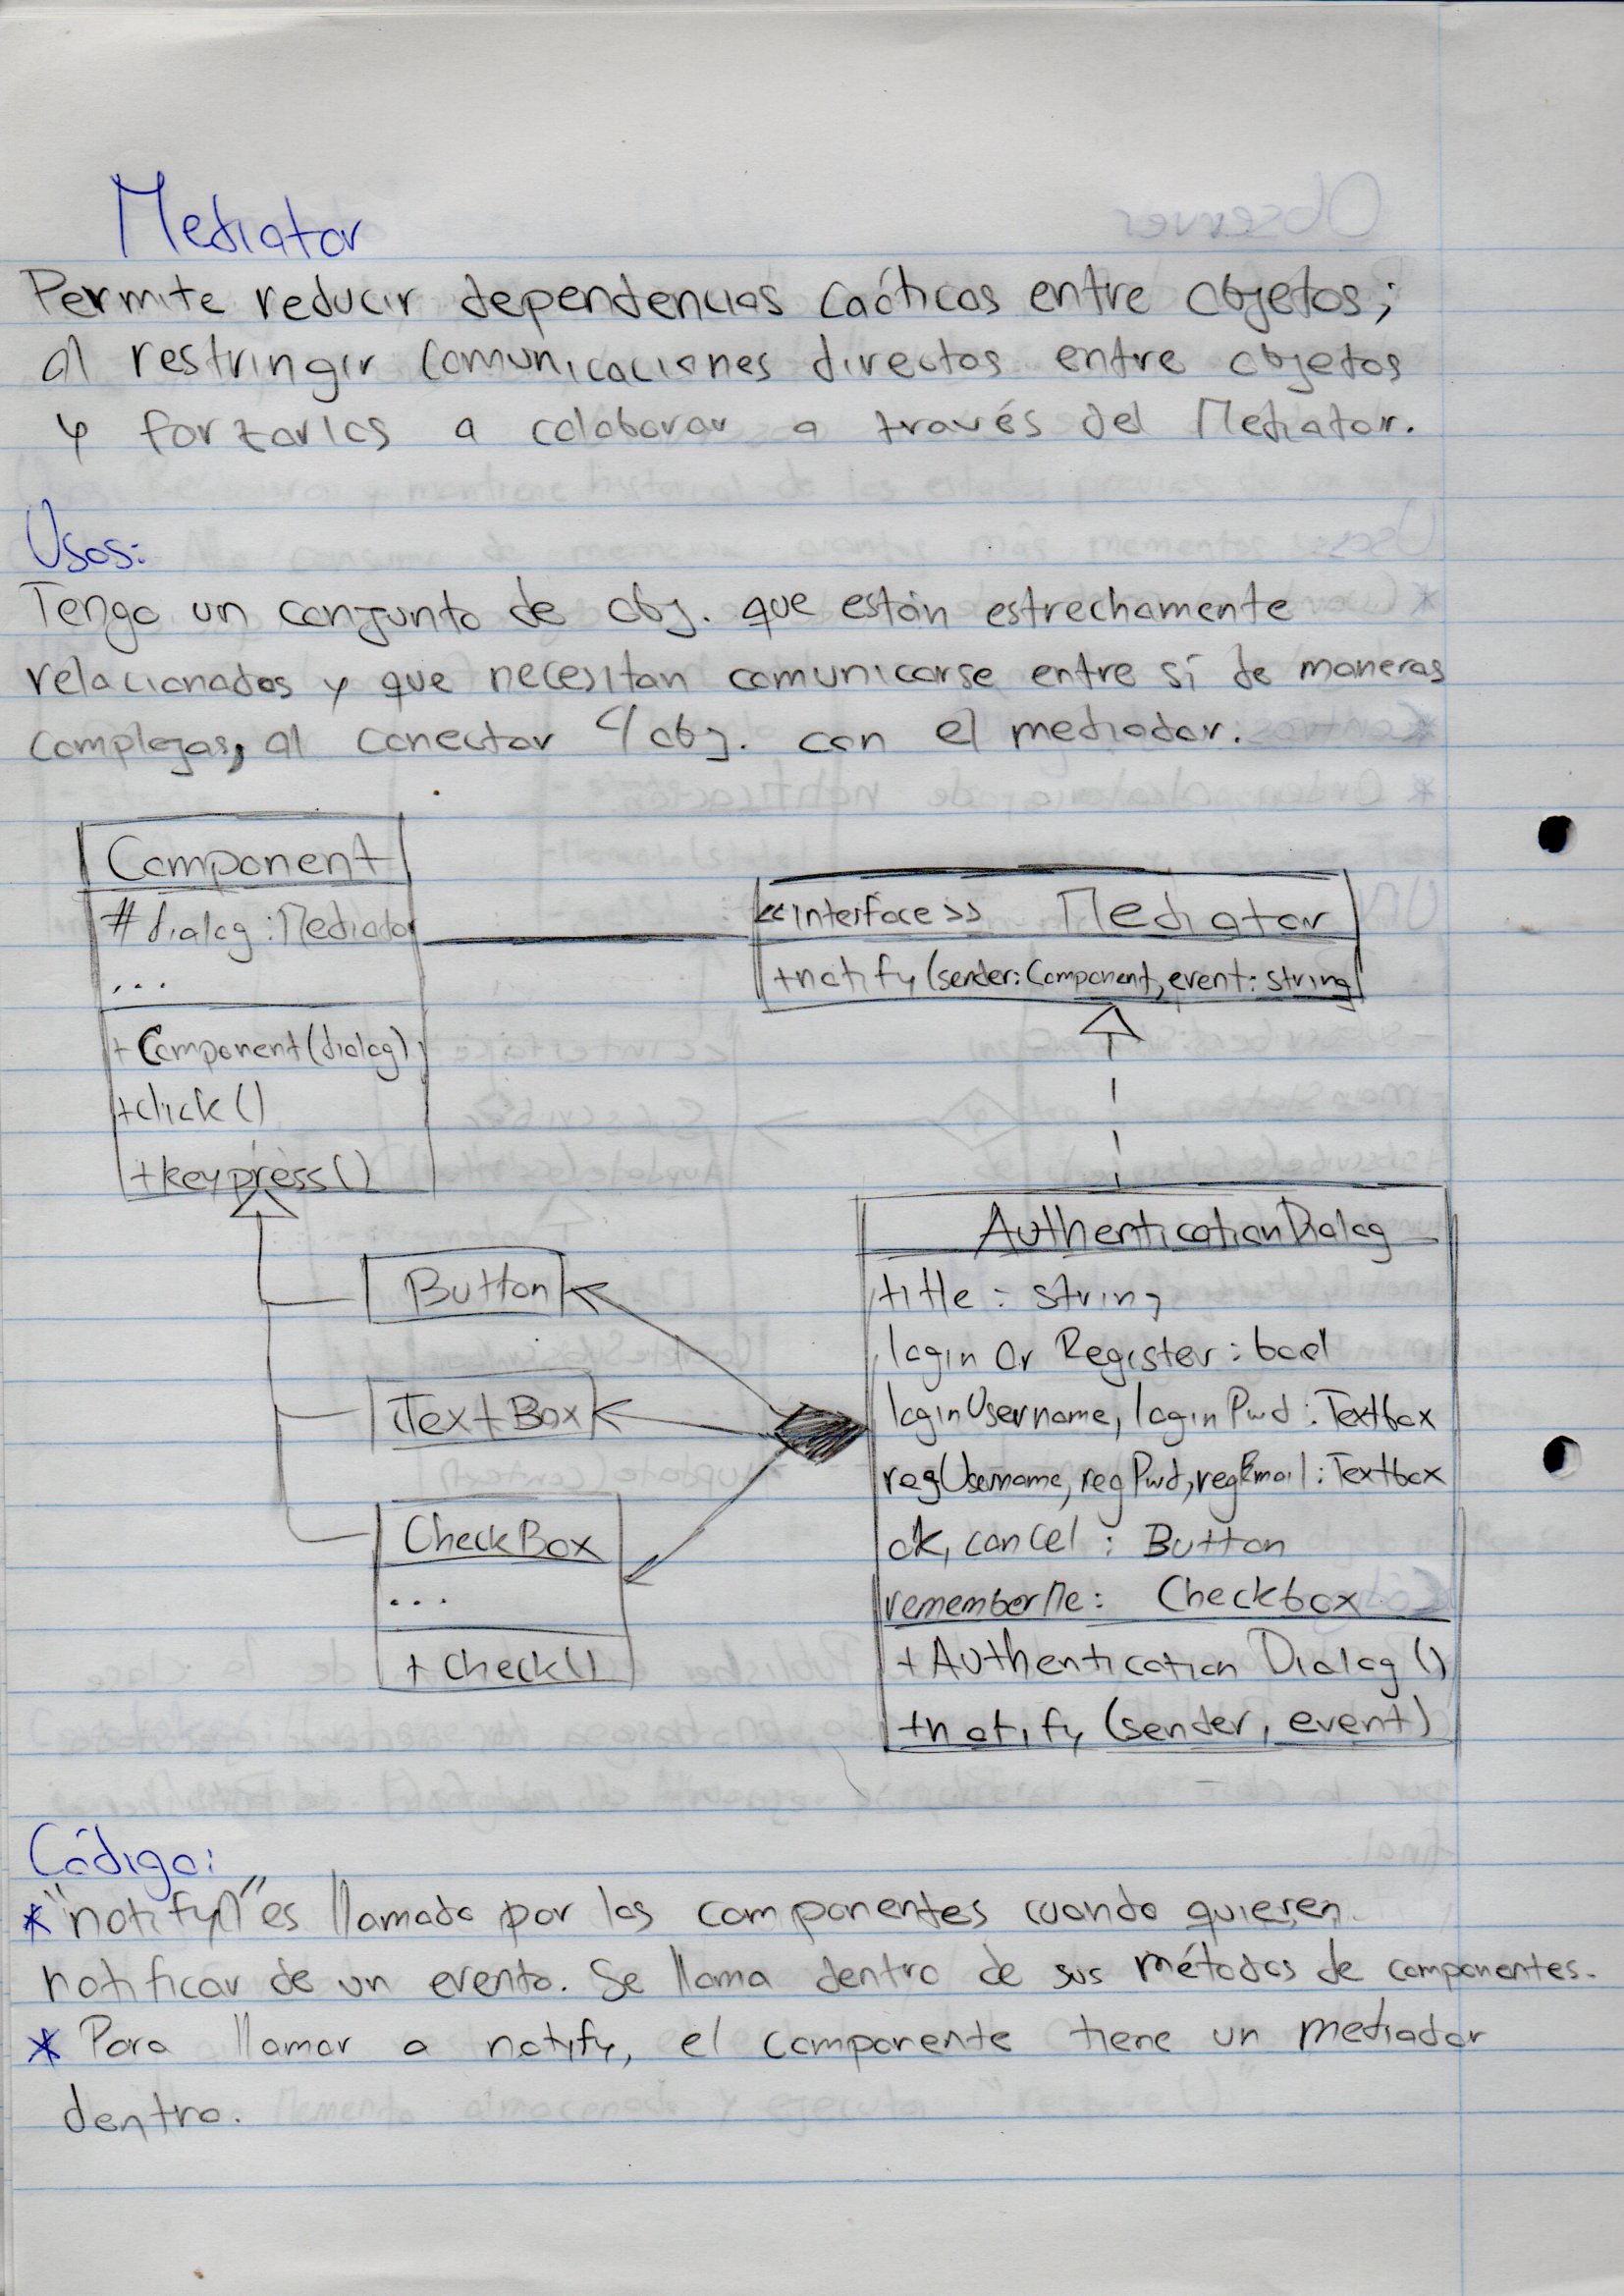 Mediator
Permite reducir dependencias caóticas entre objetos;
al restringir comunicaciones directas entre objetos
y forzarlos a colaborar a través del Mediator.
Usos:
Tengo un conjunto de obj. que están estrechamente
relacionados y que necesitan comunicarse entre sí de maneras
complejas, al conectar c/obj. con el mediador.
Component
#dialog:Mediator
...
+Component(dialog)
+click()
+keypress()
<<interface>> Mediator
+notify(sender:Component,event:string)
Button
TextBox
CheckBox
...
+check()
AuthenticationDialog
title: string
login Or Register: bool
loginUsername, loginPwd: Textbox
regUsername, regPwd, regEmail: Textbox
ok, cancel: Button
rememberMe: Checkbox
+AuthenticationDialog()
+notify(sender, event)
Código:
* "notify()" es llamado por los componentes cuando quieren
notificar de un evento. Se llama dentro de sus métodos de componentes.
* Para llamar a notify, el componente tiene un mediador
dentro.